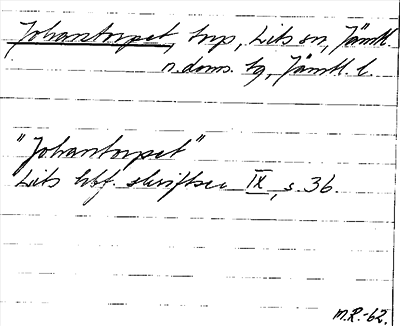 Johantorpet, torp, Lits sn, Jämtl.
n. doms. tg, Jämtl. l.
"Johantorpet"
Lits hbf. skriftser IX, s. 36.
M.R.-62.